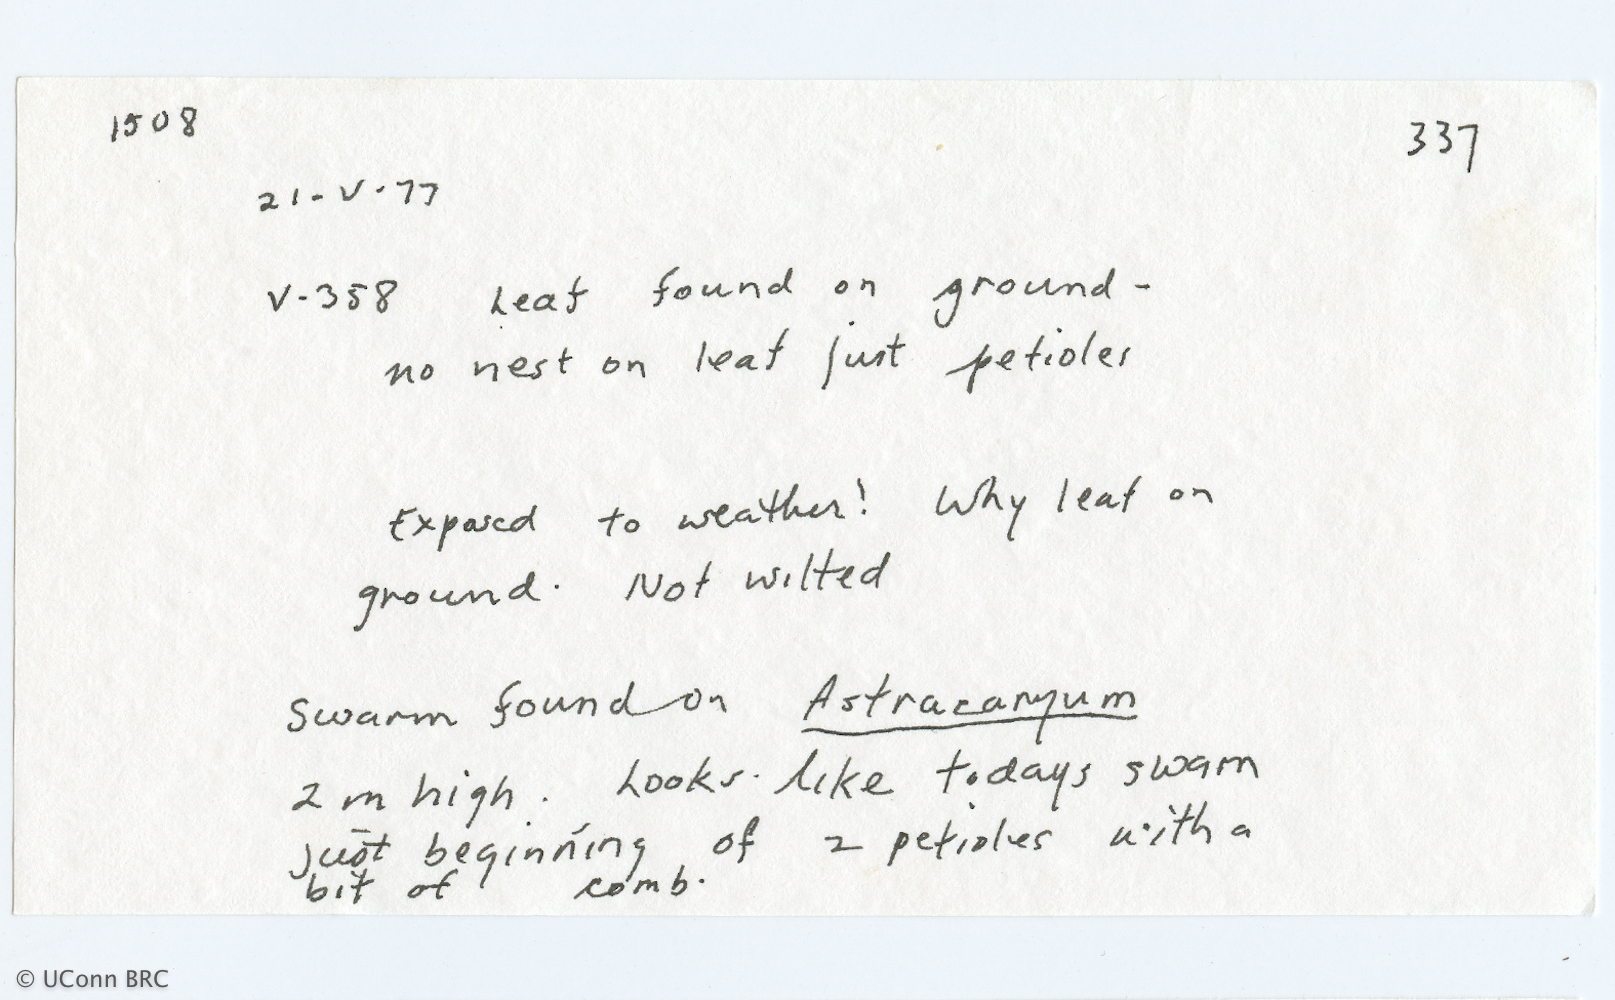 1508
337
21-V-77
V-358 Leaf found on ground-
no nest on leaf just petioles
Exposed to weather! Why leaf on
ground. Not wilted
Swarm found on Astracaryum
2 m high. Looks like todays swarm
just beginning of 2 petioles with a
bit of comb.
© UConn BRC